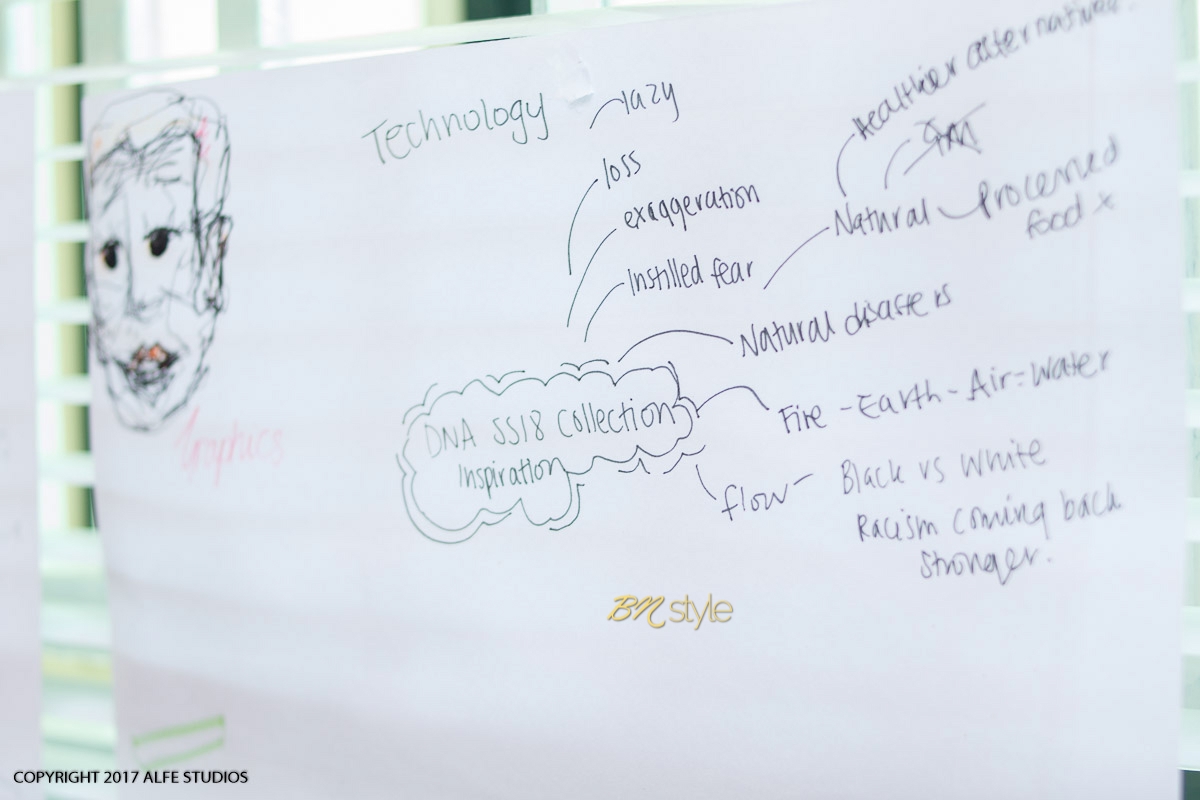 Technology
lazy
loss
exaggeration
Instilled fear
Healthier alternatives.
Natural - Processed
food x
Natural disasters
DNA SS18 Collection
Inspiration
Fire - Earth - Air = Water
flow - Black vs White
Racism coming back
stronger.
Graphics
BN style
COPYRIGHT 2017 ALFE STUDIOS